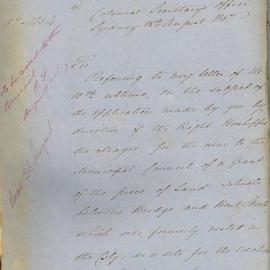 57-1834
Colonial Secretary's Office
Sydney 18th August 1857
Sir
Referring to my letter of the
10th ultimo, on the subject of
the application made by you by
direction of the Right Worshipful
the Mayor, for the issue to the
Municipal Council of a Grant
of the piece of Land situate
between Bridge and Bent Streets
which was formerly vested in
the City, as a site for the
To be sent to the